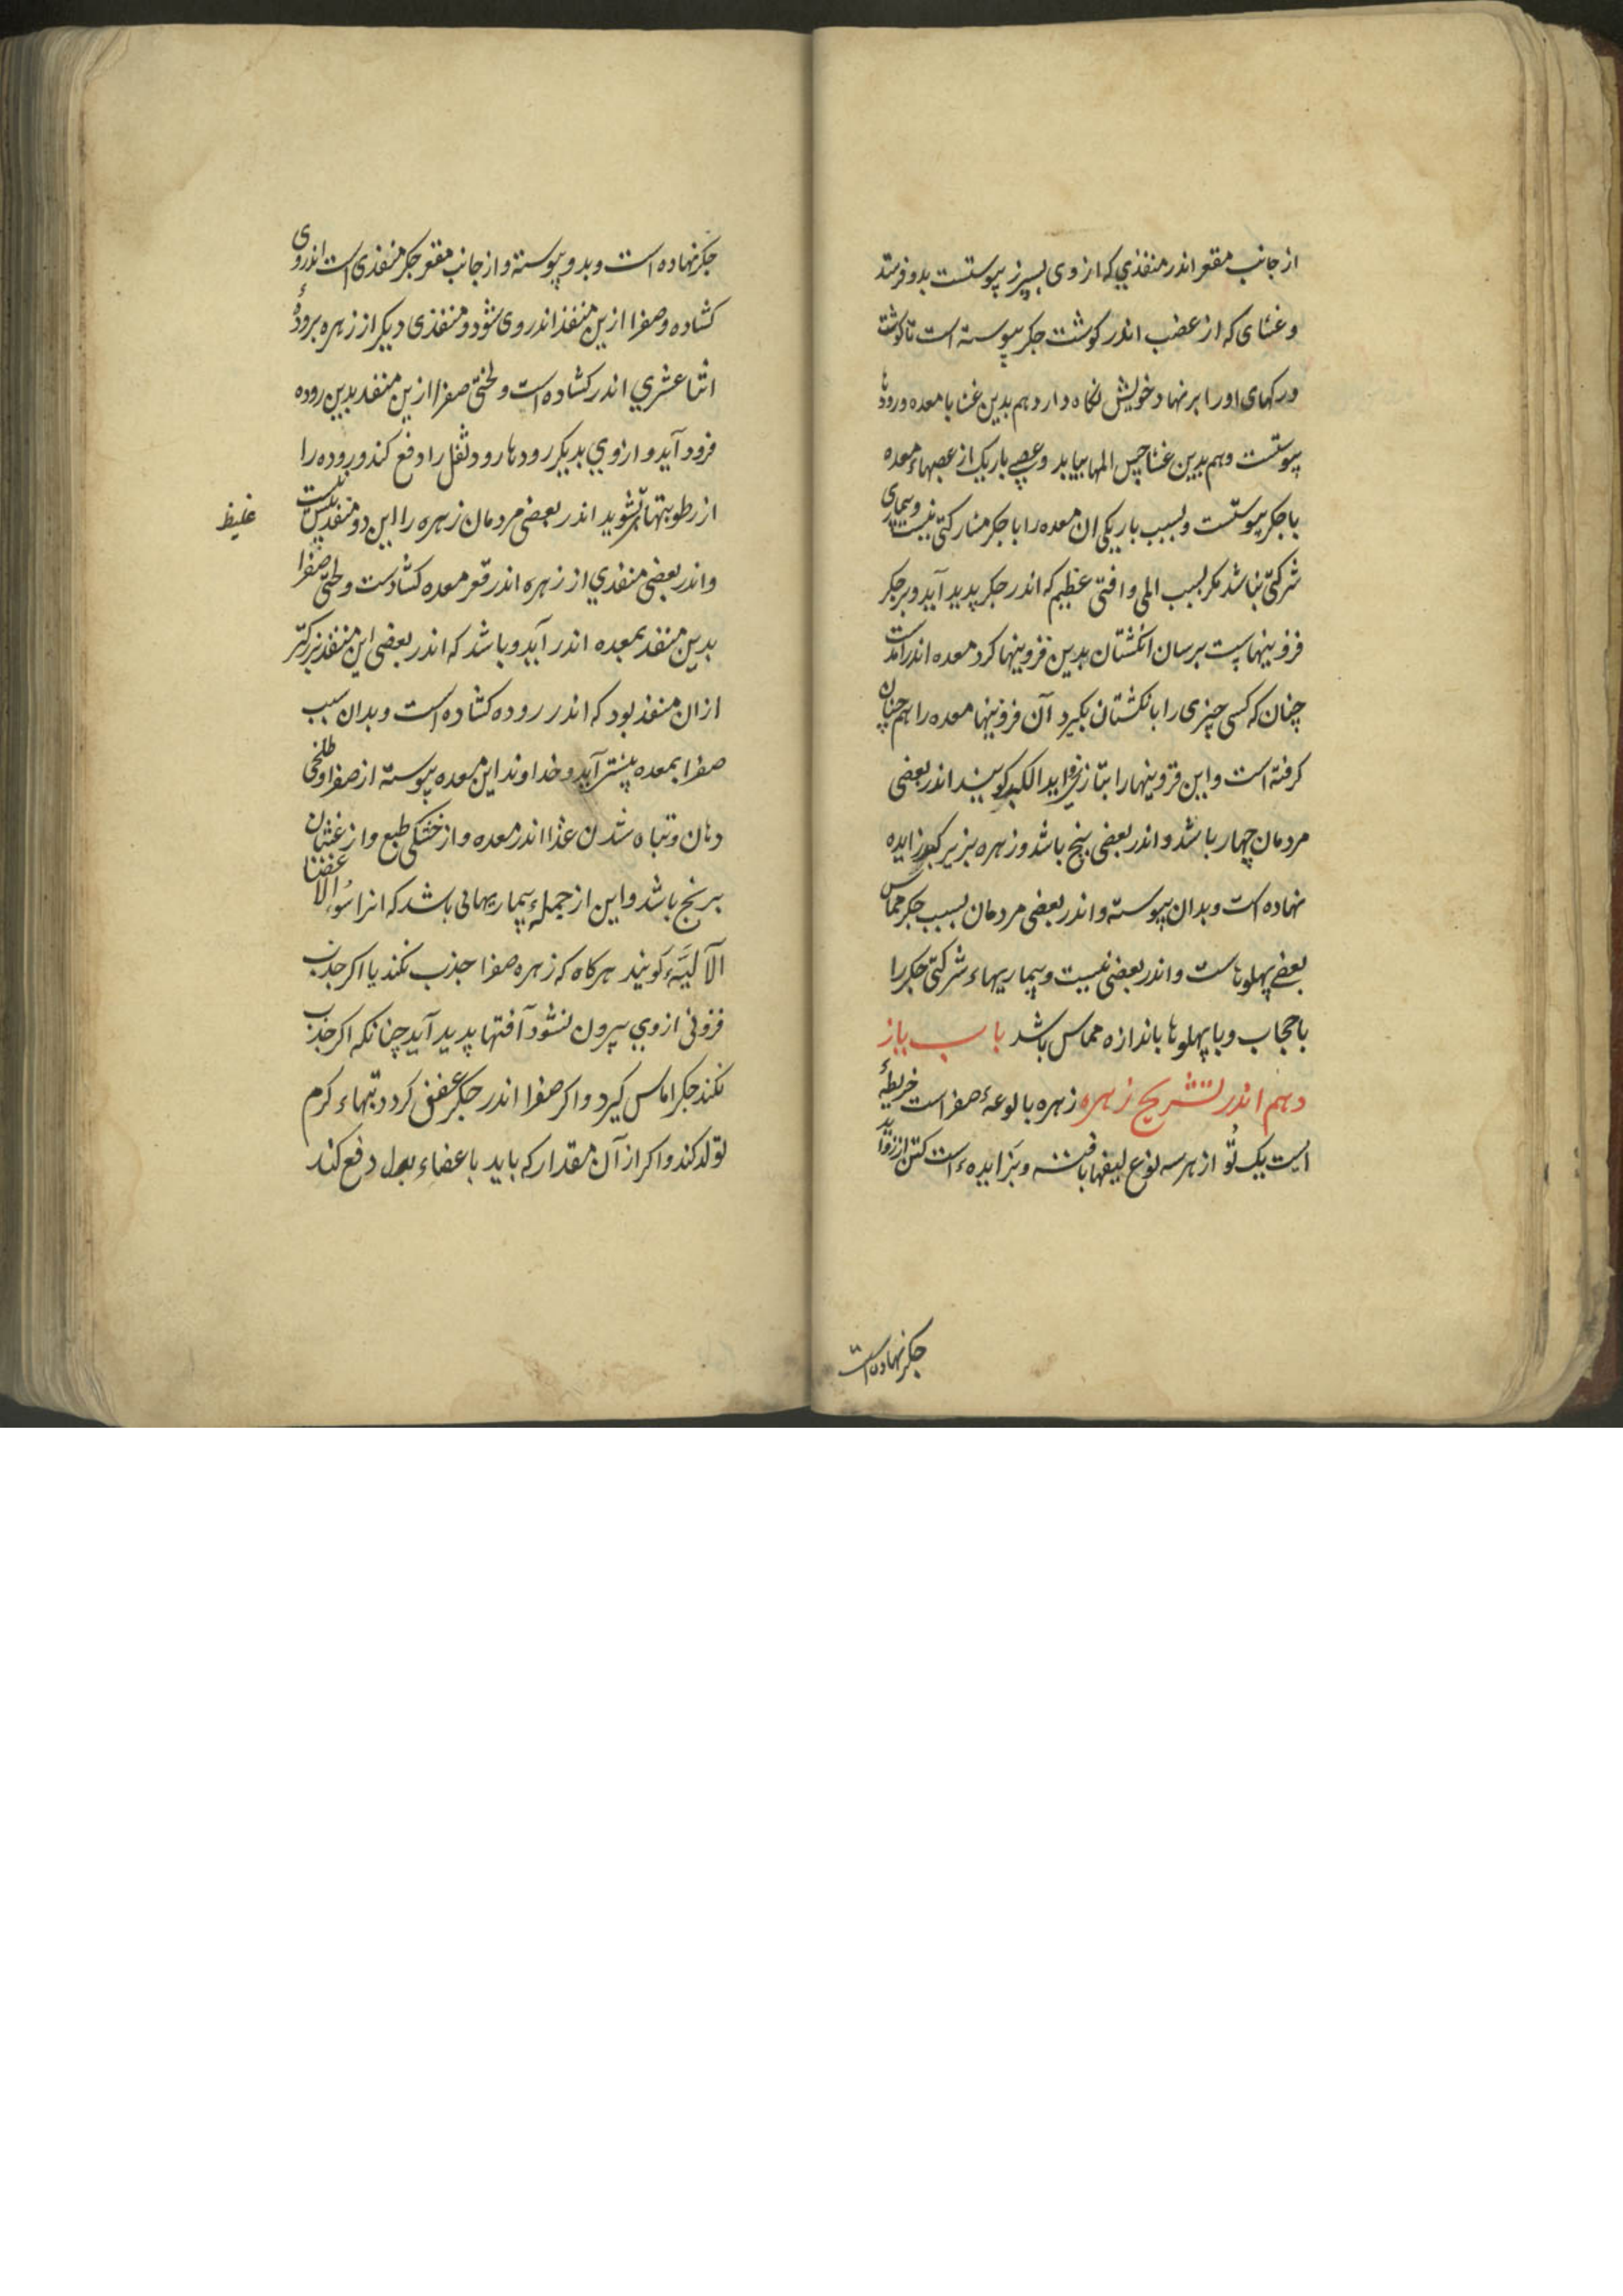 از جانب مقعر اندر منفذی که از وی بسپرز پیوستست بدو فرستد
و غشای که از عصب اندر کوشت جکر پیوسته است تا کوشت
و رکهای او را بر نهاد خویش نکاه دارد هم بدین غشا با معده و رودها
پیوستست و هم بدین غشا حس المها بیابد و عصبی باریک از عصبهاء معده
با جکر پیوستست و بسبب باریکی ان معده را با جکر مشارکتی نیست و بیماری
شرکتی نباشد مکر بسبب المی و افتی عظیم که اندر جکر پدید آید و بر جکر
فزونیهاست برسان انکشتان بدین فزونیها کرد معده اندر آمدست
چنان که کسی چیزی را بانکشتان بکیرد آن فزونیها معده را هم چنان
کرفته است و این فزونیها را بتازی زواید الکبد کویند اندر بعضی
مردمان چهار باشد و اندر بعضی پنج باشد و زهره بزیر زایده
نهاده است و بدان پیوسته و اندر بعضی مردمان بسبب جکر مماس
بعضی پهلوهاست و اندر بعضی نیست و بیماریهاء شرکتی جکر را
با حجاب و با پهلوها باندازه مماس باشد باب یاز
دهم اندر تشریح زهره زهره بالوعهٔ صفراست خریطهٔ
است یک تُو از هر سه نوع لیفها بافته و بر زایدهء است
جکر نهاده است
جکر نهاده است و بدو پیوسته و از جانب مقعر جکر منفذی است اندر وی
کشاده و صفرا ازین منفذ اندر وی شود و منفذی دیکر از زهره برودهٔ
اثنا عشری اندر کشاده است و لختی صفرا ازین منفذ بدین روده
فرود آید و از وی بدیکر رودها رود و ثفل را دفع کند و روده را
از رطوبتهاء بشوید اندر بعضی مردمان زهره را این دو منفذ نیست
غلیظ
و اندر بعضی منفذی از زهره اندر قعر معده کشادست و لختی صفرا
بدین منفذ بمعده اندر آید و باشد که اندر بعضی این منفذ بزرکتر
از ان منفذ بود که اندر روده کشاده است و بدان سبب
صفرا بمعده بیشتر آید و خداوند این معده پیوسته از صفرا و طلخی
دهان و تباه شدن غذا اندر معده و از خشکی طبع و از غثیان
برنج باشد و این از جملهء بیماریهائی باشد که انرا سوءالاعضا
الآلیَّهء کویند هرکاه که زهره صفرا جذب نکند یا اکر جذب
فزونی از وی بیرون نشود آفتها پدید آید چنانکه اکر جذب
نکند جکر اماس کیرد و اکر صفرا اندر جکر عفن کردد تبهاء کرم
تولد کند و اکر از آن مقدار که باید باعضاء بول دفع کند